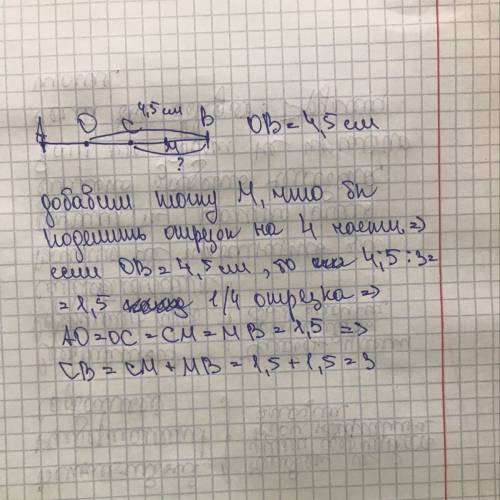 A O C 4,5 см M B OB = 4,5 см
?
добавим точку M, что бы
поделить отрезок на 4 части =>
если OB = 4,5 см, то 4,5 : 3 =
= 1,5 1/4 отрезка =>
AO = OC = CM = MB = 1,5 =>
CB = CM + MB = 1,5 + 1,5 = 3